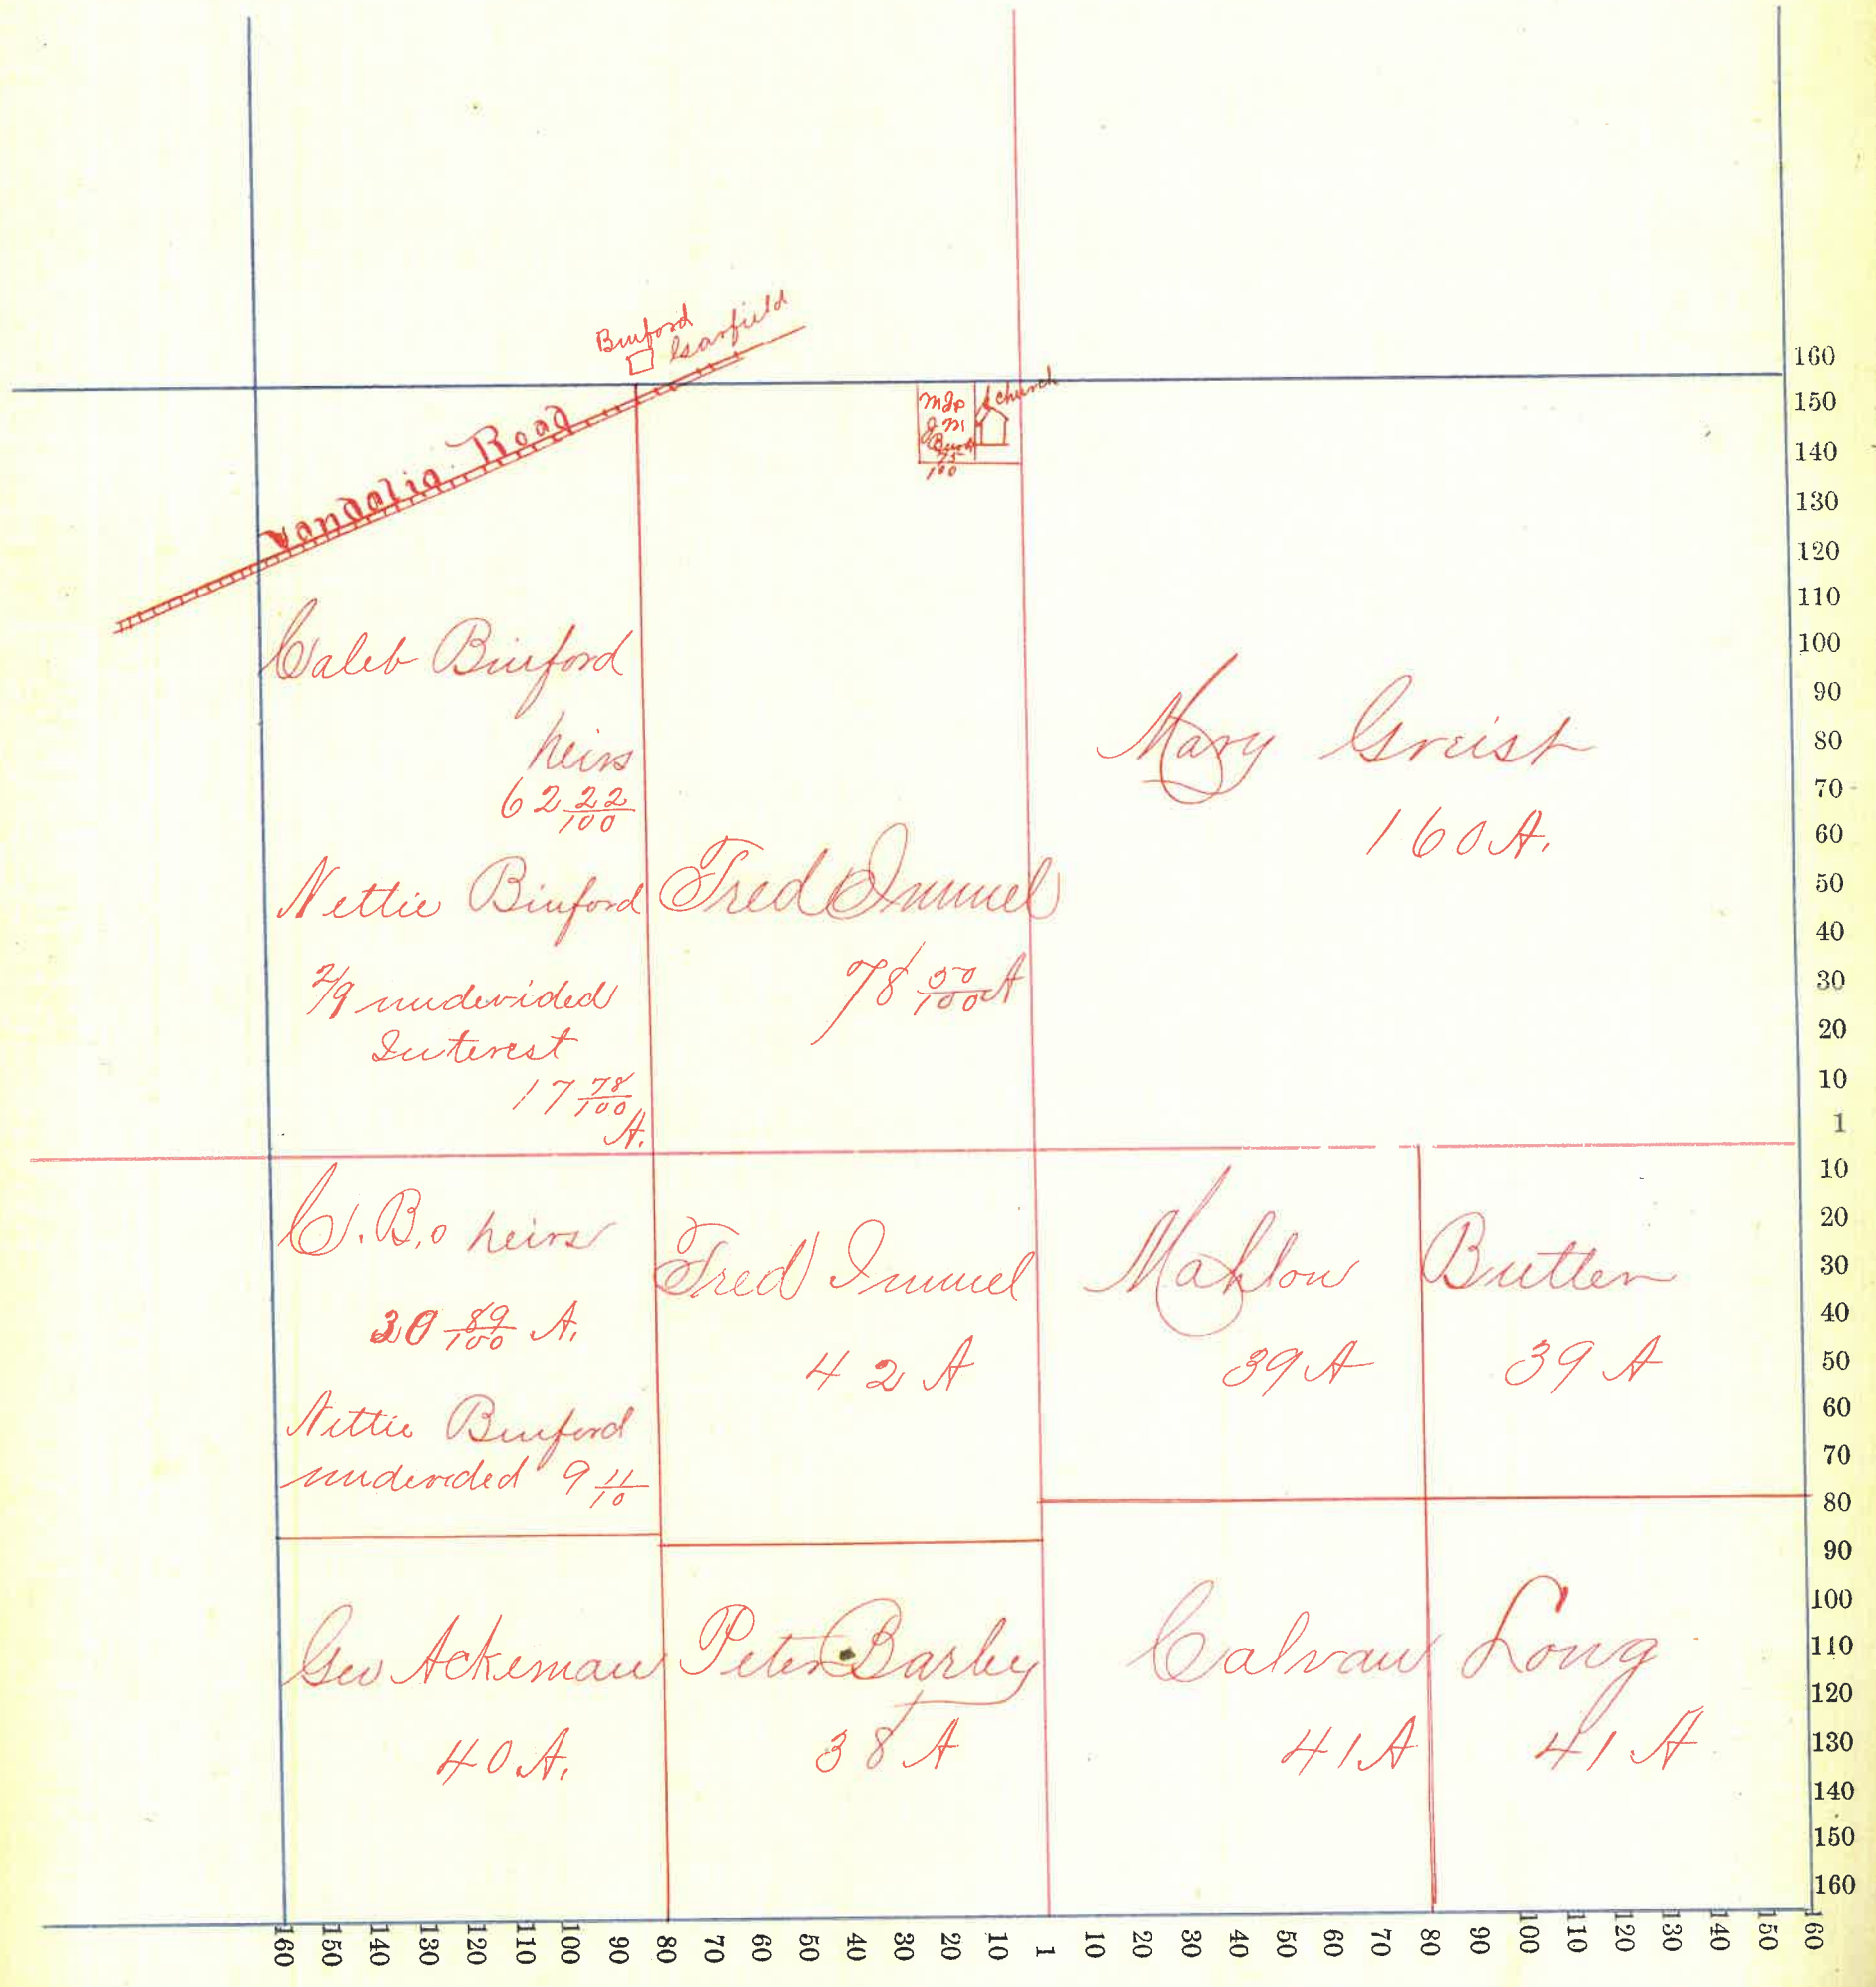 Binford
Garfield
Vandalia Road
church
75/100
Caleb Binford
heirs
62 22/100
Nettie Binford
2/9 undevided
Interest
17 78/100
A.
Fred Immel
78 50/100 A
Mary Greist
160 A.
C. B,o heirs
30 89/100 A.
Nettie Binford
undevided 9 11/10
Fred Immel
42 A
Mahlon Butler
39 A 39 A
Geo Ackeman
40 A.
Peter Barley
38 A
Calvan Long
41 A 41 A
160
150
140
130
120
110
100
90
80
70
60
50
40
30
20
10
1
10
20
30
40
50
60
70
80
90
100
110
120
130
140
150
160
160 150 140 130 120 110 100 90 80 70 60 50 40 30 20 10 1 10 20 30 40 50 60 70 80 90 100 110 120 130 140 150 160